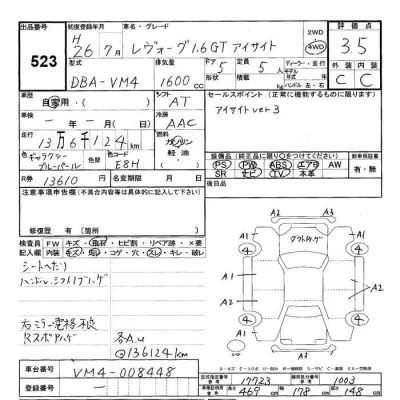 出品番号 523
初度登録年月 H 26年 7月
車名・グレード レヴォーグ1.6GT アイサイト
2WD 4WD
評価点 3.5
型式 DBA-VM4
排気量 1600 CC
ドア 5 定員 5人
形状 積載 kg
ディーラー・並行
モデル年式
ハンドル 左・右
外装 内装
C C
車歴 自家用・( )
シフト AT
セールスポイント(正常に機能するものに限ります)
アイサイト ver 3
車検 ー年ー月ー日
冷房 AAC
走行 13万6千124 km
燃料 ガソリン 軽油 ( )
色 ギャラクシーブルーパール
色替
色コード E8H
装備品(純正品に限り○をつけてください)
PS PW ABS エアB AW
SR ナビ TV 本革
新車保証書 有・無
R券 13610 円
名変期限 月 日
後日品
注意事項申告欄(不具合内容等は具体的に記入して下さい)
修復歴 有( )【箇所 】
検査員記入欄
FW キズ・飛石・ヒビ割・リペア跡・×要
内装 キズ・汚れ・コゲ・穴・スレ・キレ・破レ
シートへたり
ハンドル、シフトノブハゲ
右ミラー電格不良
RスポアUゲ
各A.u
@136124km
A3
A1 A1
ダクトハゲ
4 4
A1 A2
A2
4 4
A1 A1
A3
車台番号 VM4-008448
登録番号 ー
型式指定番号 参考 17723
類別区分番号 参考 1003
車両証明書 参考 長さ 469 cm 幅 178 cm 高さ 148 cm